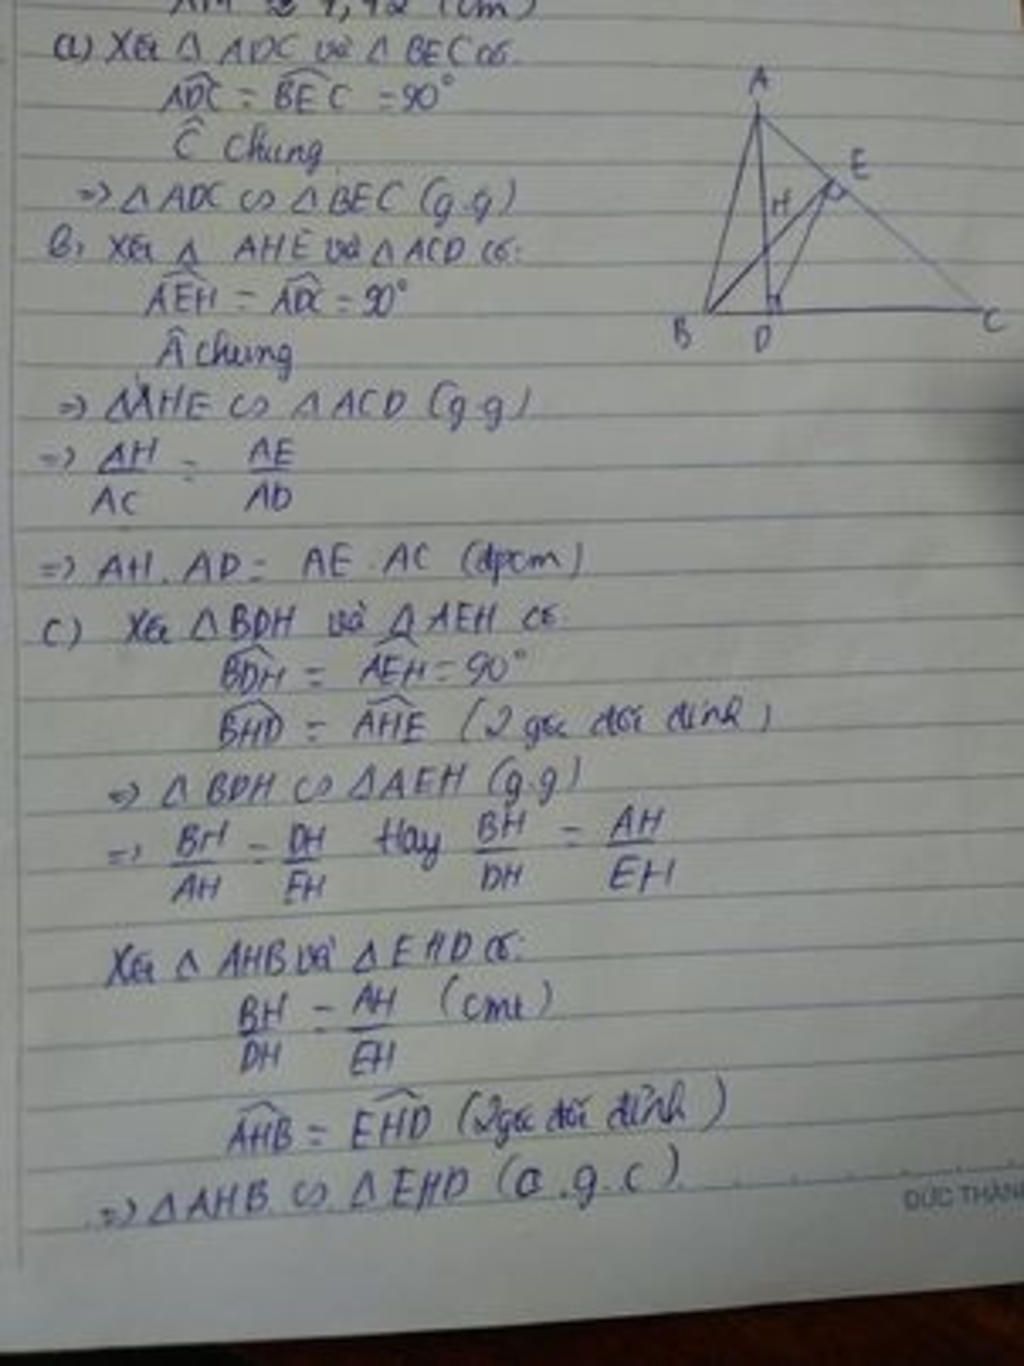 a) Xét Δ ADC và Δ BEC có:
ADC = BEC = 90°
Ĉ chung
=> Δ ADC ∽ Δ BEC (g.g)
b, Xét Δ AHE và Δ ACD có:
AEH = ADC = 90°
Â chung
=> ΔAHE ∽ Δ ACD (g.g)
=> AH/AC = AE/AD
=> AH . AD = AE . AC (đpcm)
c) Xét Δ BDH và Δ AEH có:
BDH = AEH = 90°
BHD = AHE (2 góc đối đỉnh)
=> Δ BDH ∽ Δ AEH (g.g)
=> BH/AH = DH/EH Hay BH/DH = AH/EH
Xét Δ AHB và Δ EHD có:
BH/DH = AH/EH (cmt)
AHB = EHD (2 góc đối đỉnh)
=> Δ AHB ∽ Δ EHD (c.g.c)
A
E
H
B
D
C
ĐỨC THÀN